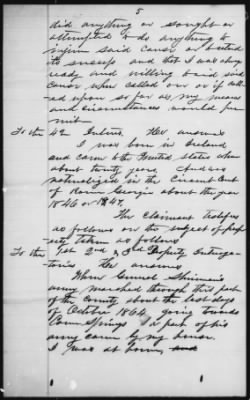 5
did anything or sought or
attempted to do anything to
injure said cause or
its success and that I was always
ready and willing to aid said
cause when called on or if call-
ed upon so far as my means
and circumstances would per-
mit
To the 42 Inters. He answers
I was born in Ireland
and came to the United States when
about twenty years
naturalized in the Circuit Court
of Rome Georgia about the year
1846 or 1847.
The Claimant testifies
as follows on the subject of prop-
erty taken as follows
To the 1st 2nd & 3rd Property Interroga-
tories He answers
When General Sherman's
army marched through this part
of the County about the last days
of October 1864 going towards
Cave Springs I a part of his
army came by my house.
I was at home, and